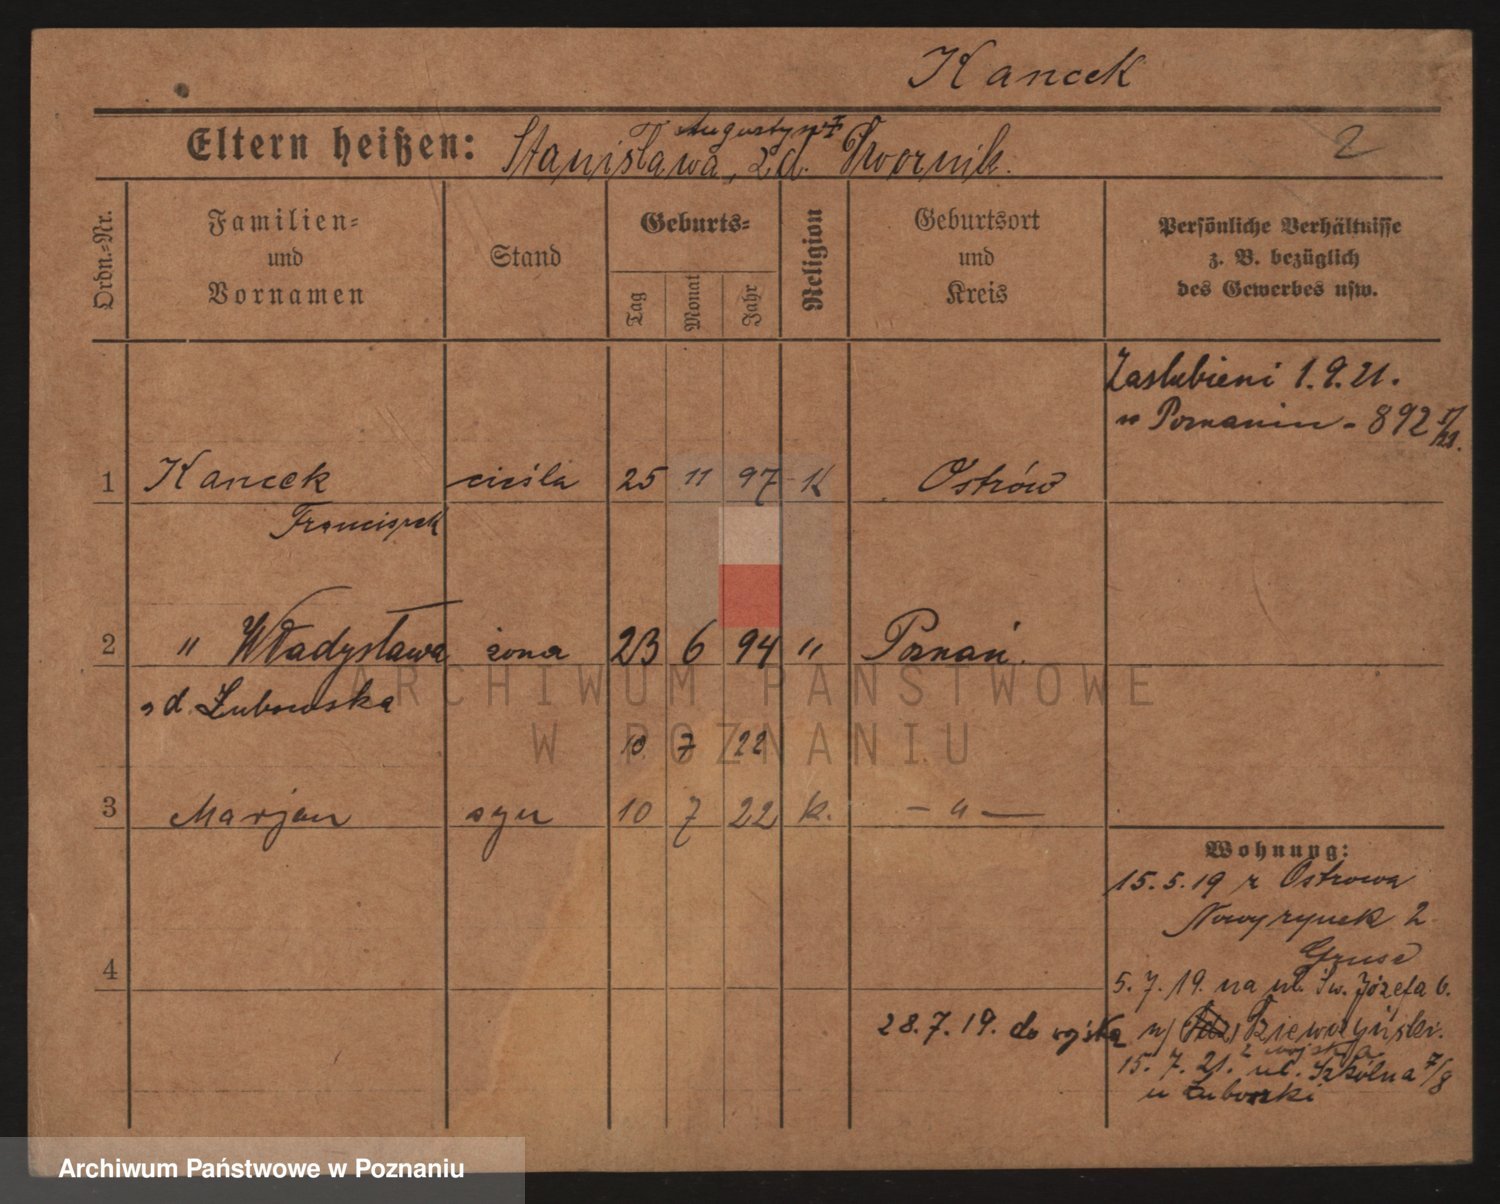 Kancek
Eltern heißen: Stanisława, Augustyn z d. Dwornik.
2
Ordn.-Nr.
Familien- und Vornamen
Stand
Geburts-
Tag
Monat
Jahr
Religion
Geburtsort und Kreis
Persönliche Verhältnisse z. B. bezüglich des Gewerbes usw.
Zaslubieni 1.9.21.
w Poznaniu - 892
1 Kancek cieśla 25 11 97 K Ostrów
Franciszek
2 " Władysława żona 23 6 94 " Poznań.
z d. Łubowska
10 7 22
3 Marjan syn 10 7 22 k. — " —
Wohnung:
15.5.19 z Ostrowa
Nowy rynek 2
4
5.7.19. na ul. Św. Józefa 6.
28.7.19. do wojska
z wojska
15.7.21. ul. Szkólna 7/8
u
ARCHIWUM PAŃSTWOWE
W POZNANIU
Archiwum Państwowe w Poznaniu